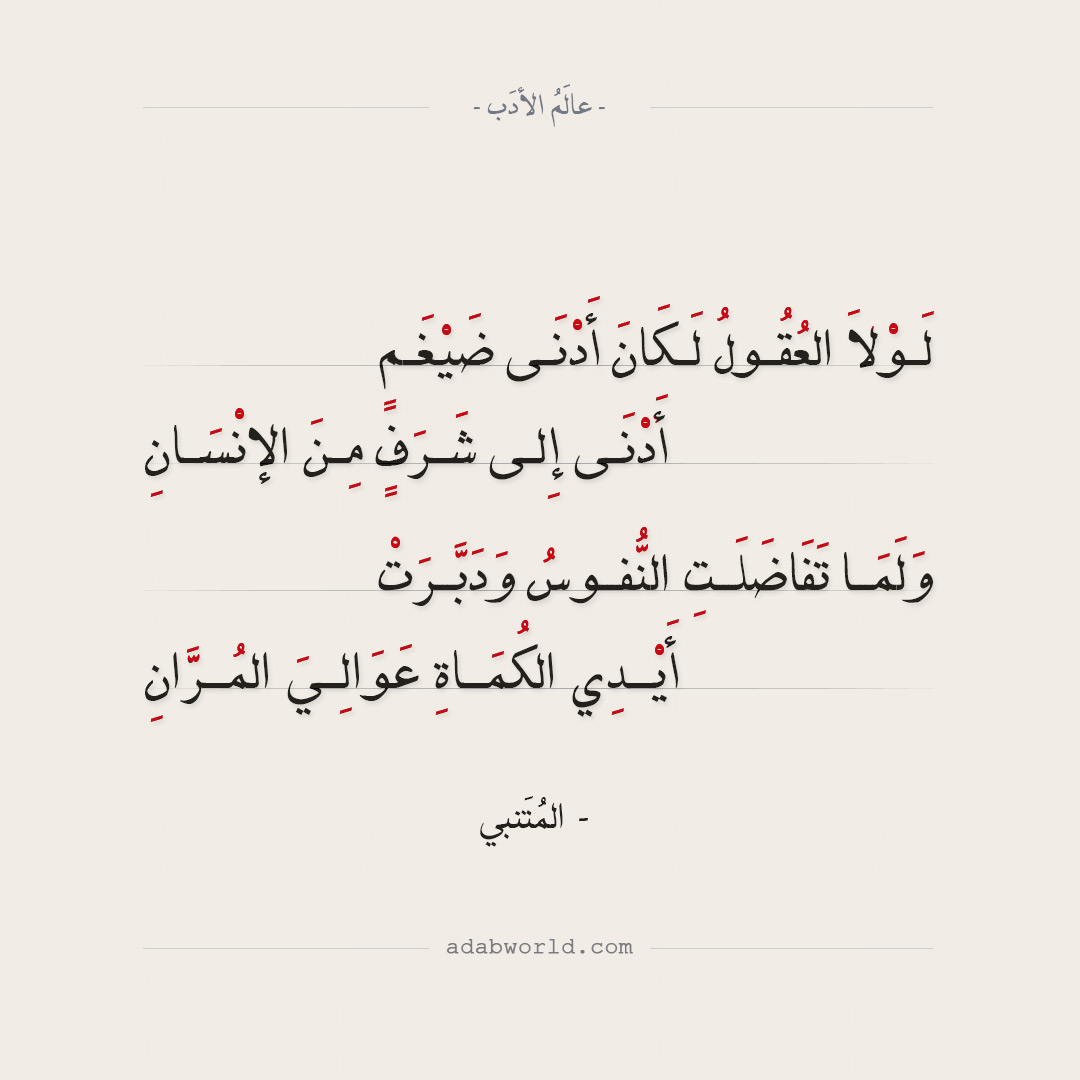 - عالَمُ الأدَب -
لَــوْلاَ العُقُــولُ لَــكَانَ أَدْنَــى ضَيْغَــمٍ
أَدْنَــى إِلــى شَــرَفٍ مِــنَ الإنْسَــانِ
وَلَمَــا تَفَاضَلَــتِ النُّفــوسُ وَدَبَّــرَتْ
أَيْــدِي الكُمَــاةِ عَوَالِــيَ المُــرَّانِ
- المُتَنبي
adabworld.com